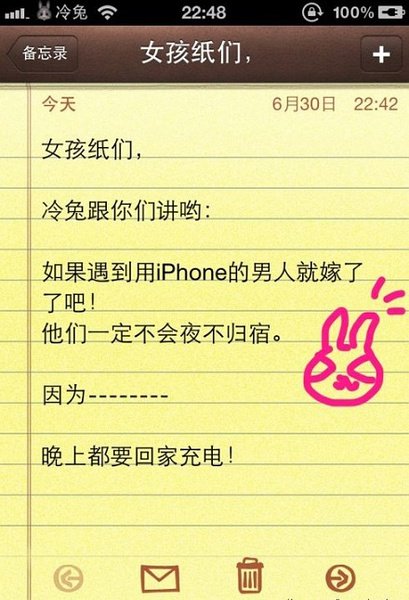 冷兔 22:48 100%
备忘录 女孩纸们，
今天 6月30日 22:42
女孩纸们，
冷兔跟你们讲哟：
如果遇到用iPhone的男人就嫁了
了吧！
他们一定不会夜不归宿。
因为--------
晚上都要回家充电！